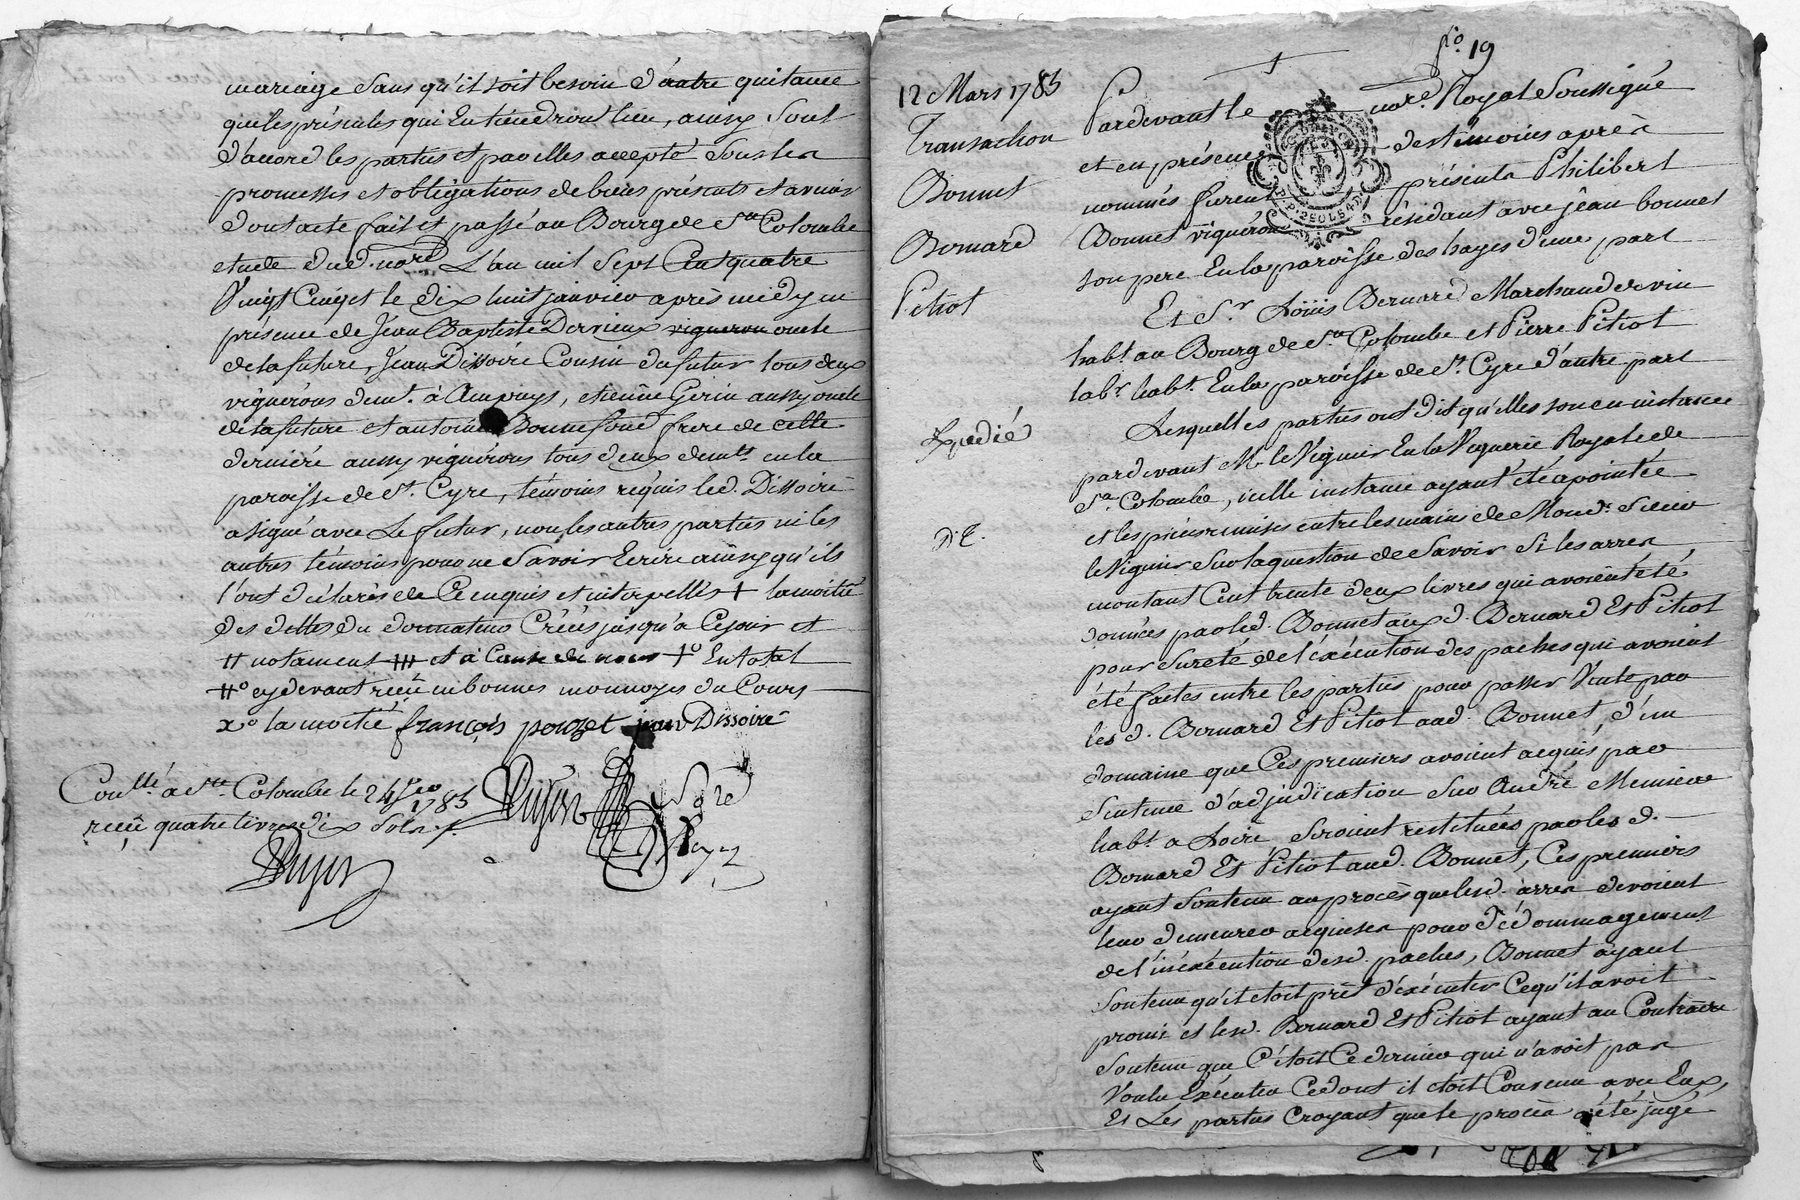 mariage sans qu'il soit besoin d'autre quitance
que les présentes qui en tiendront lieu, ainsy sont
d'accord les parties et par elles accepté sous les
promesses et obligations de biens présents et avenir
dont acte fait et passé au Bourg de Ste Colombe
etude dud. nore L'an mil sept Cent quatre
Vingt Cinq et le dix huit janvier après midy en
présence de Jean Baptiste Dervieux vigneron oncle
de la future, Jean Dissoire Cousin du futur tous deux
vignérons demt. à Ampuys, etienne Gerin aussy oncle
de la future et antoine Bonnefond frere de cette
derniére aussy vignérons tous deux demts en la
paroisse de St. Cyre, témoins requis led. Dissoire
a signé avec Le futur, non les autres parties ni les
autres témoins pour ne Savoir Ecrire ainsy qu'ils
l'ont déclarés de Ce enquis et interpellés + la moitié
des dettes du donnateur Créés jusqu'à Cejour et
++ notament +++ et à Cause de noces +o En total
++o cy devant reçu en bonnes monnoyes du Cours
xo la moitié françois pouzet jean Dissoire
Conllé à Ste Colombe le 24 jer 1785
reçu quatre livres dix sols
Dujon
Nore
Rl
Dujon
fo. 19
12 Mars 1785
Transaction
Bonnet
Bernard
Pitiot
Expedié
D. E.
Pardevant le nore. Royal Soussigné
et en présence des témoins après
nommés furent présents Philibert
Bonnet vignéron résidant avec jean bonnet
son pere En la paroisse des hayes d'une part
Et Sr. Loüis Bernard Marchand de vin
habt. au Bourg de Ste Colombe et Pierre Pitiot
labr. habt. En la paroisse de St. Cyre d'autre part
Lesquelles parties ont dit qu'elles sont en instance
pardevant Mr le Viguier En la Viguerie Royale de
Ste. Colombe, icelle instance ayant été apointée
et les piéces remises entre les mains de Mond. Sieur
le Viguier Sur la question de Savoir Si les arres
montant Cent trente deux livres qui avoient été
données par led. Bonnet aux d. Bernard Et Pitiot
pour Sureté de l'éxécution des paches qui avoient
été faites entre les parties pour passer Vente par
les d. Bernard Et Pitiot aud. Bonnet, d'un
domaine que Ces premiers avoient acquis par
Sentence d'adjudication Sur André Meniere
habt. a Loire Seroient restituées par les d.
Bernard Et Pitiot aud. Bonnet, Ces premiers
ayant Soutenu au procès que lesd. arres devoient
leur demeurer acquises pour dédommagement
de l'inéxécution desd. paches, Bonnet ayant
Soutenu qu'il étoit prêt d'éxécuter Cequ'il avoit
promis et lesd. Bernard Et Pitiot ayant au Contraire
Soutenu que C'étoit Ce dernier qui n'avoit pas
Voulu Exécuter Cedont il étoit Convenu avec Eux,
Et Les parties Croyant que le procès a été jugé